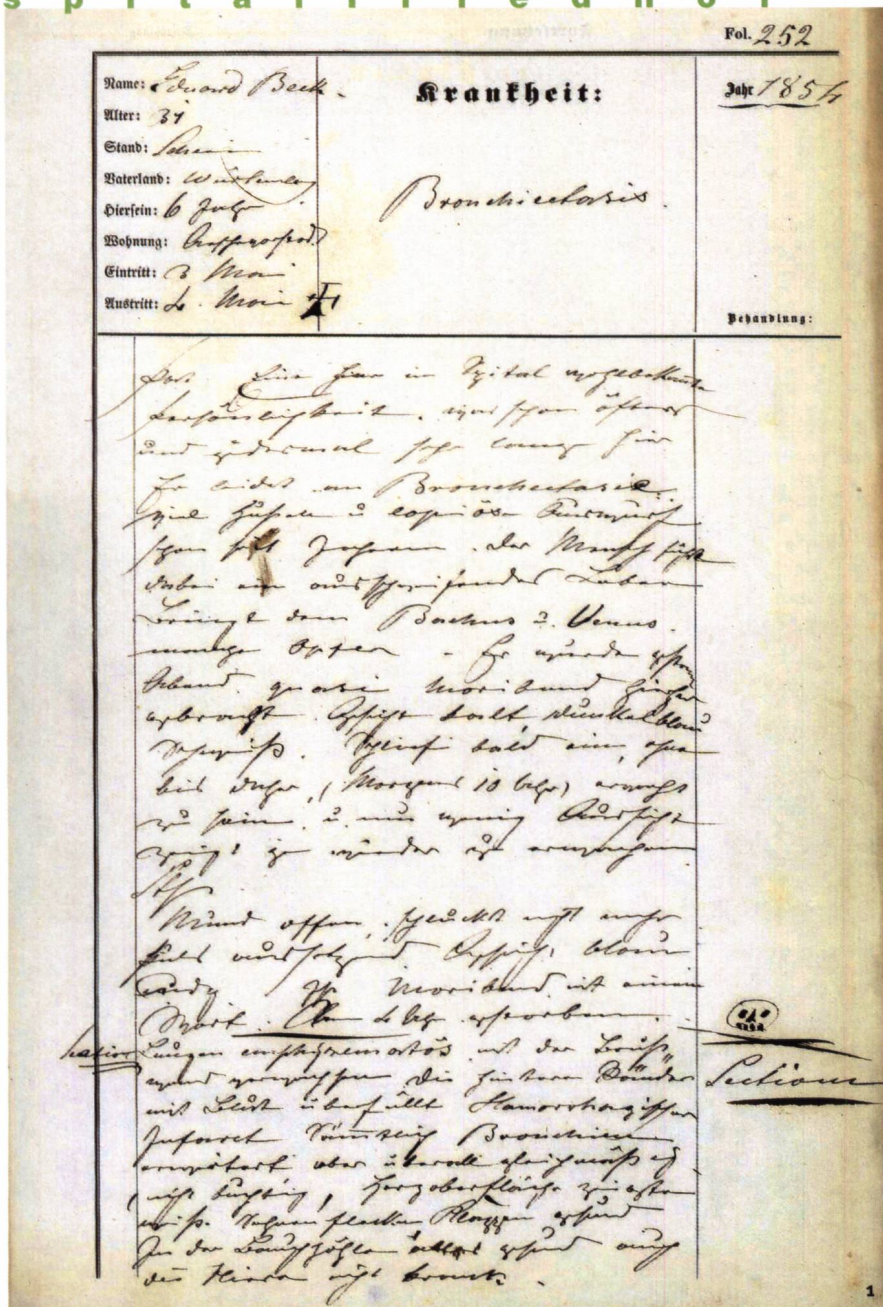 s p i t a l f r i e d h o f
Fol. 252
Name: Eduard Beck.
Krankheit:
Jahr 1854
Alter: 31
Stand:
Vaterland: Würtemberg
Bronchiectasis.
Hiersein: 6 Jahr
Wohnung:
Eintritt: 3 Mai
Austritt: 4. Mai
Behandlung:
Eine hier im Spital wohlbekannte
Persönlichkeit. war schon öfters
und jedesmal sehr lange hier
Er leidet an Bronchectasie
viel Husten u copiösen Auswurf
schon seit Jahren. Der Mensch führt
dabei ein ausschweifendes Leben
bringt dem Bachus u. Venus
manche Opfer - Er wurde gestern
Abend quasi Moribund hieher
gebracht. Gesicht kalt dunkelblau
Schweiß. Schlief bald ein, ohne
bis daher (Morgens 10 Uhr) erwacht
zu sein, u. nun wenig Aussicht
zu erwachen
Mund offen, schluckt nicht mehr
Puls aussetzend Gesicht blau
Moribund mit einem
Wort. Um 4 Uhr gestorben.
Section
Lungen emphysematös mit der Brust
wand verwachsen die hinteren Ränder
Section
mit Blut überfüllt Hämorrhagischer
Infarct Sämtlich Bronchien
erweitert aber überall gleichmäßig
(nicht buchtig) Herzoberfläche
weiße Sehnenflecken Klappen gesund
In der Bauchhöhle alles gesund auch
die Nieren nicht krank.
1